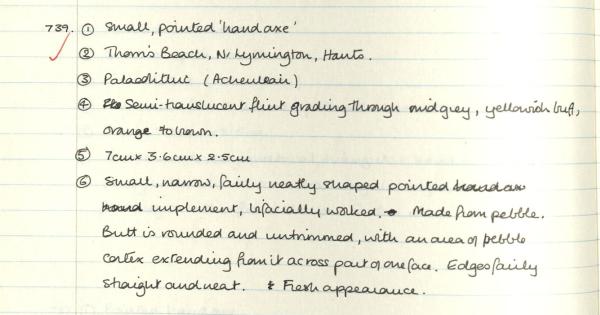 739. ① Small, pointed 'hand axe'
② Thorn's Beach, Nr Lymington, Hants.
③ Palaeolithic (Acheulean)
④ Semi-translucent flint grading through mid grey, yellowish buff,
orange to brown.
⑤ 7cm x 3.6cm x 2.5cm
⑥ Small, narrow, fairly neatly shaped pointed
implement, bifacially worked. Made from pebble.
Butt is rounded and untrimmed, with an area of pebble
cortex extending from it across part of one face. Edges fairly
straight and neat. Fresh appearance.